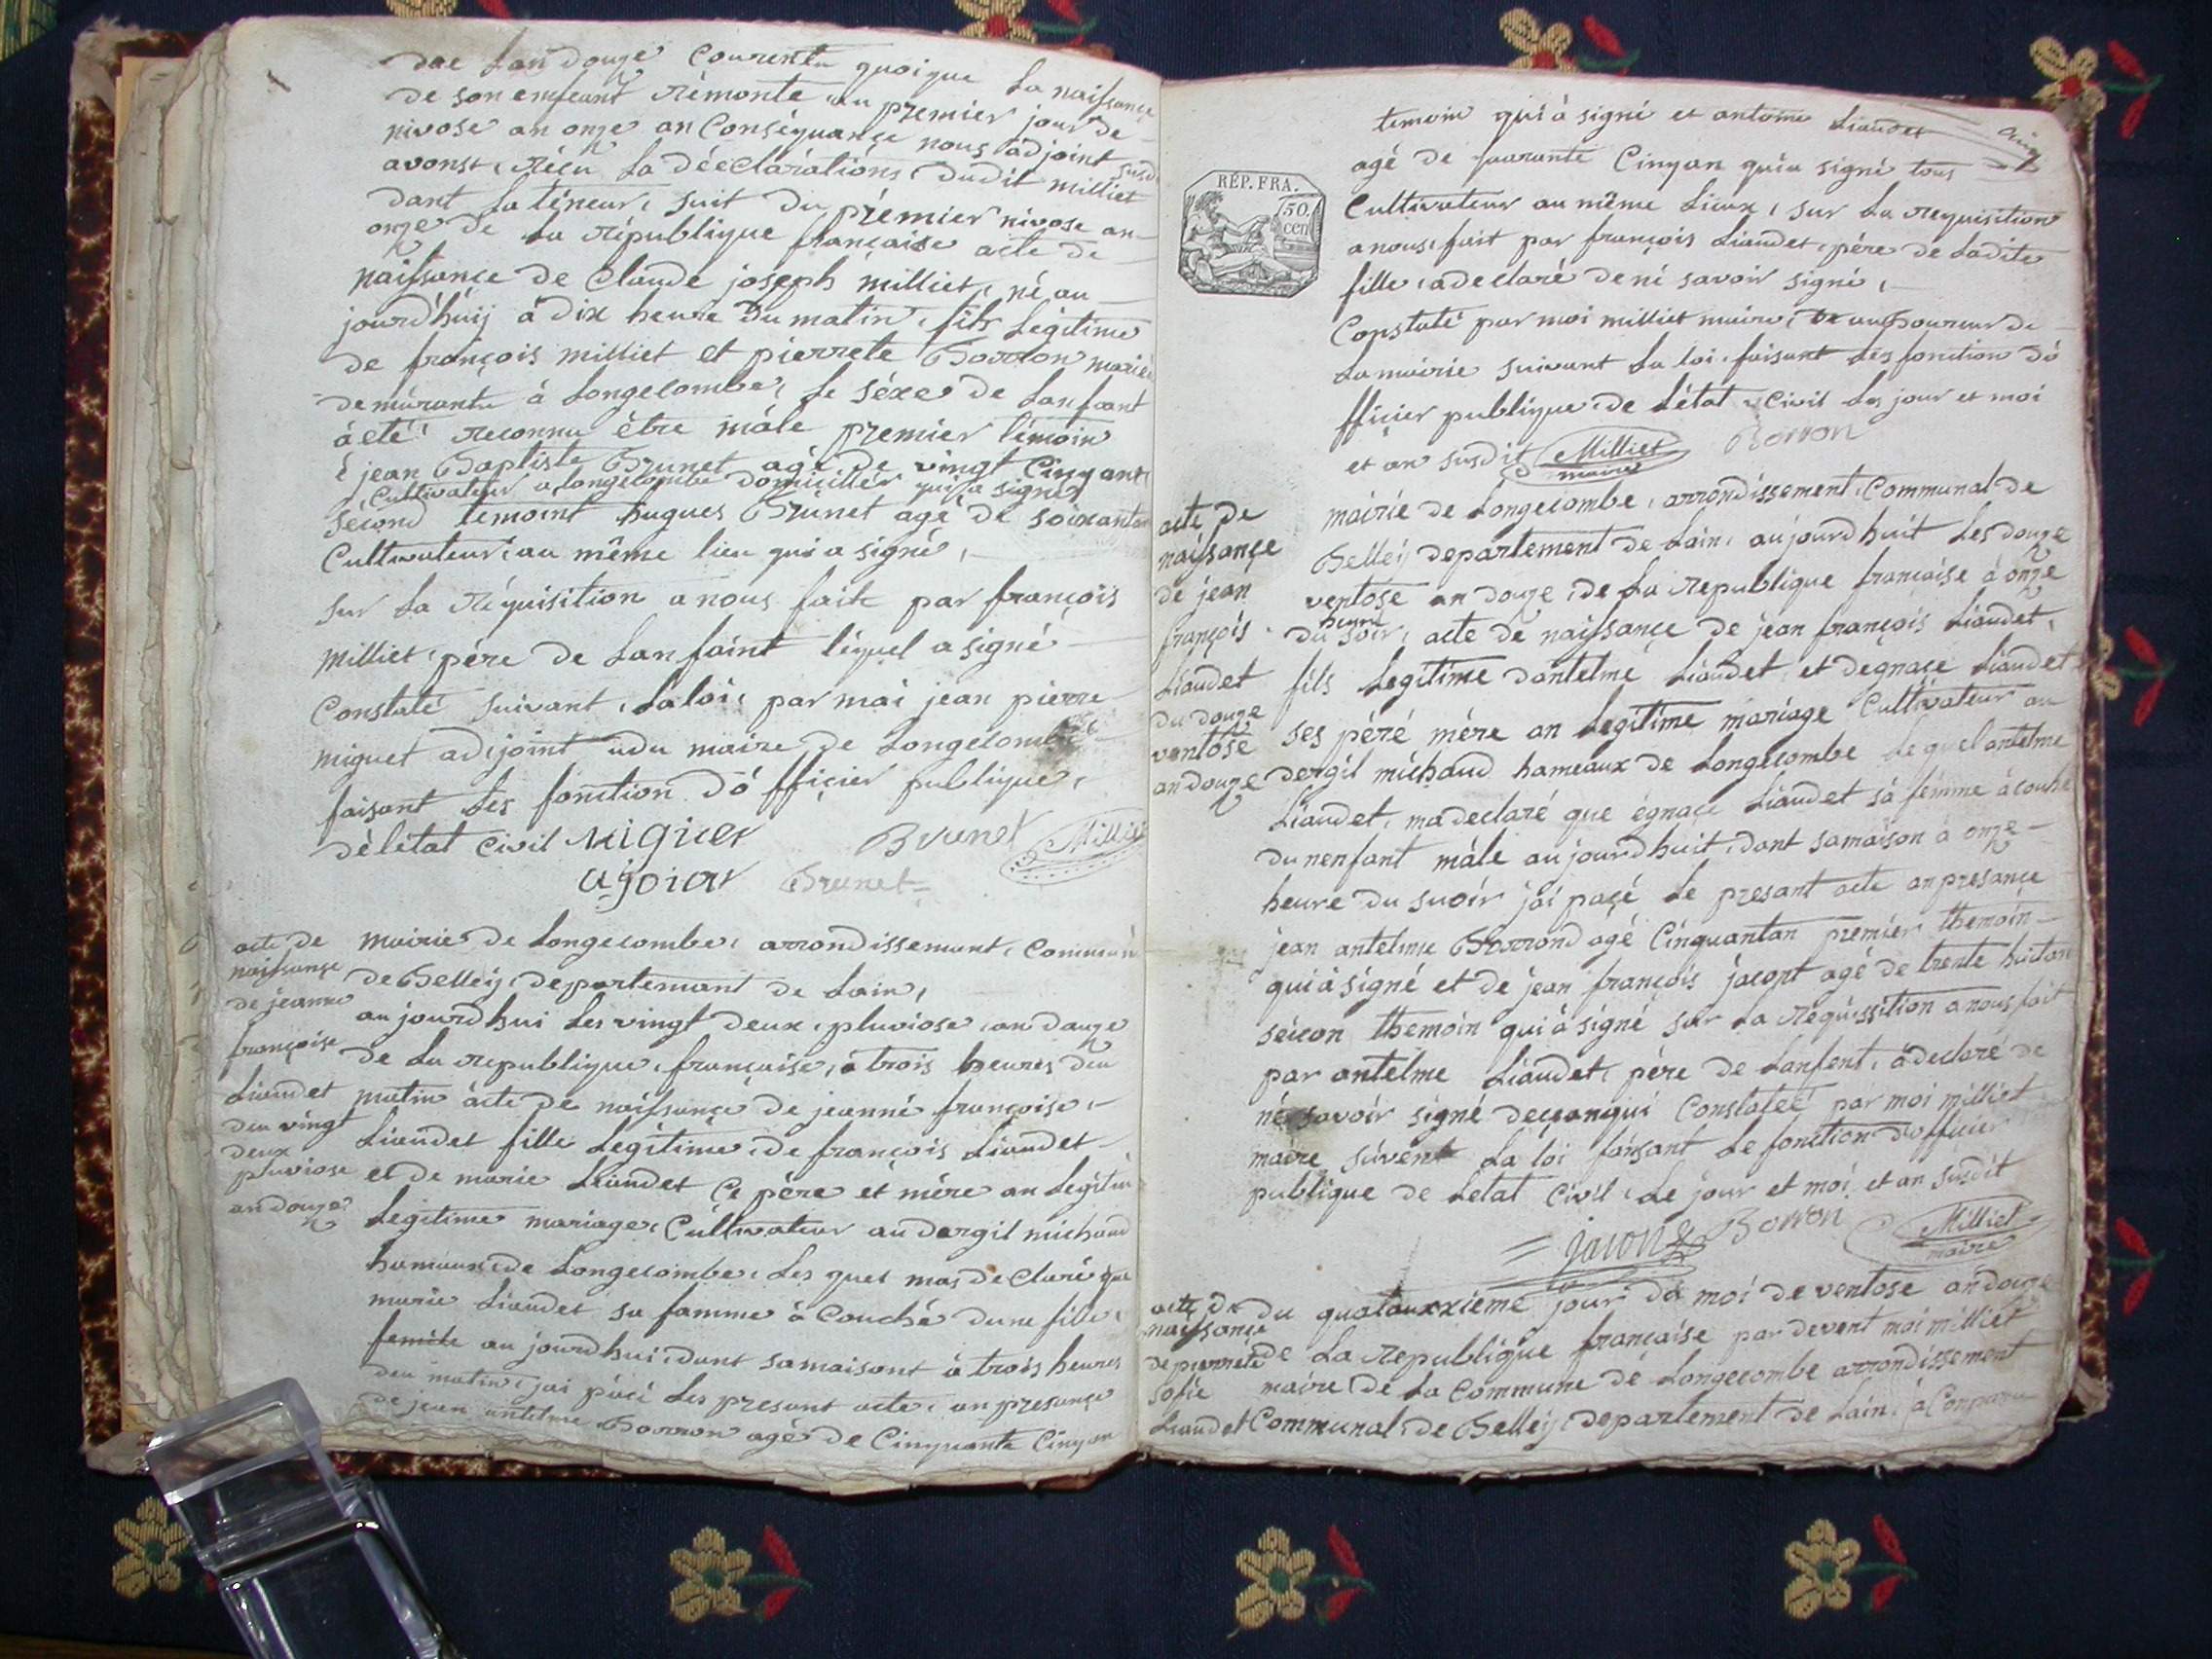 dae Lan douze Courentu quoique La naissance
de son emfeant rémonte au premier jour de
nivose an onze an Conséquançe nous adjoint susd
avonst réçu La dééclarations dudit milliet
dant La téneur, suit du prémier nivose an
onze de La république française acte de
naissançe de Claude joseph milliet, né au
jourdhúij à dix heure du matin, fils Légitime
de françois milliet et pierrete Borron mariés
demúrantu à Longecombe, Le séxe de Lanfoant
àété reconnu être mâle premier témoin
é jean Baptiste Brunet agé de vingt Cinq ans
Cultivateur a Longecombe domicillier qui a signé
sécond temoint hugues Brunet agé de soixantan
Cultivateur au même lieu qui a signé,
sur La réquisition a nous faite par françois
Milliet père de Lanfaint léquel a signé
Constaté suivant Laloi, par mai jean pierre
miguet adjoint adu maire de Longecombe
faisant Les fonction dó fficier publique,
délétat Civil Miguet Brunet Milliet
ajoint Brunet
acte de
naissançe
de jeanne
françoise
Liaudet
deu vingt
deux
pluviose
an douze
mairie de Longecombe, arrondissemant, Commun
de Belleij departemant de Lain,
aujourdhui Les vingt deux pluviose an douze
de La republique française, à trois heures deu
matin àcte de naissançe de jeanné françoise
Liaudet fille Legitime de françois Liaudet
et de marie Liaudet Ce père et mère an Legitim
Legitime mariage, Cultivateur au dergil michaud
hameaux de Longecombe, Les ques mas declaré que
marie Liaudet sa famme à Couché dune fille
femele au jourdhui dant samaisont à trois heures
deu matin, jai pàcé Les presant acte, an presançe
de jean antelme Borron agé de Cinquante Cinq an
temoin qui à signé et antoine Liaudet
agé de quarante Cinqan quia signé tous
RÉP. FRA.
50.
cen
Cultivateur au même Lieux, sur La requisition
anous fait par françois Liaudet, pére de Ladite
fille, adeclaré deni savoir signé,
Constaté par moi milliet maire, de
La mairie suivant La loi, faisant Les fonction dó
fficier publique de Létat Civil Les jour et moi
et an susdit Milliet Borron
maire
acte de
naissançe
de jean
françois
Liaudet
du douze
ventose
an douze
mairie de Longecombe, arrondissement Communal de
Belleij departement de Lain, aujourdhuit Les douze
ventose an douze de La republique française à onze
heure
du soir, acte de naissançe de jean françois Liaudet,
fils Legitime dantelme Liaudet et degnaçe Liaudet
ses péré mére an Legitime mariage Cultivateur au
dergil michaud hameaux de Longecombe Lequel antelme
Liaudet, madeclaré que égnaçe Liaudet sà fémme à couhé
dunenfant mâle aujourdhuit dant samaison à onze
heure du suoir jai paçé Le presant acte anpresançe
jean antelme Borrond agé Cinquantan premier themoin
qui à signé et de jean françois jacont agé de trente huitan
sécon themoin qui à signé sur La réquissition a nous fait
par antelme Liaudet, père de Lanfent, àdeclaré de
né savoir signé Constateé par moi milliet
maire suivent La loi faisant Le fonction dofficier
publique de Letat Civil Le jour et moi et an susdit
jacont Borron Milliet
maire
acte de
naissançe
de pierréte
sofie
Liaudet
du quatouxxieme jour du moi de ventose an douze
de La republique française par devent moi milliet
maire de La Commune de Longecombe arrondissement
Communal de Belleij departement de Lain, à Conparu